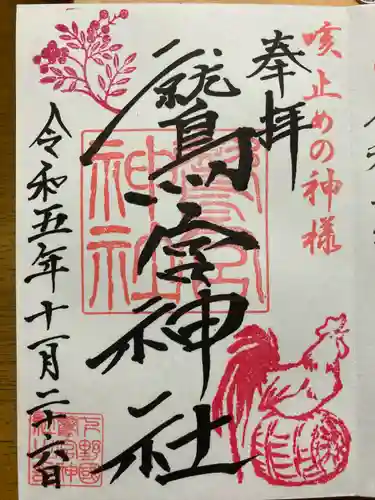 咳止めの神様
奉拝
鷲宮神社
鷲宮
神社
令和五年十一月二十六日